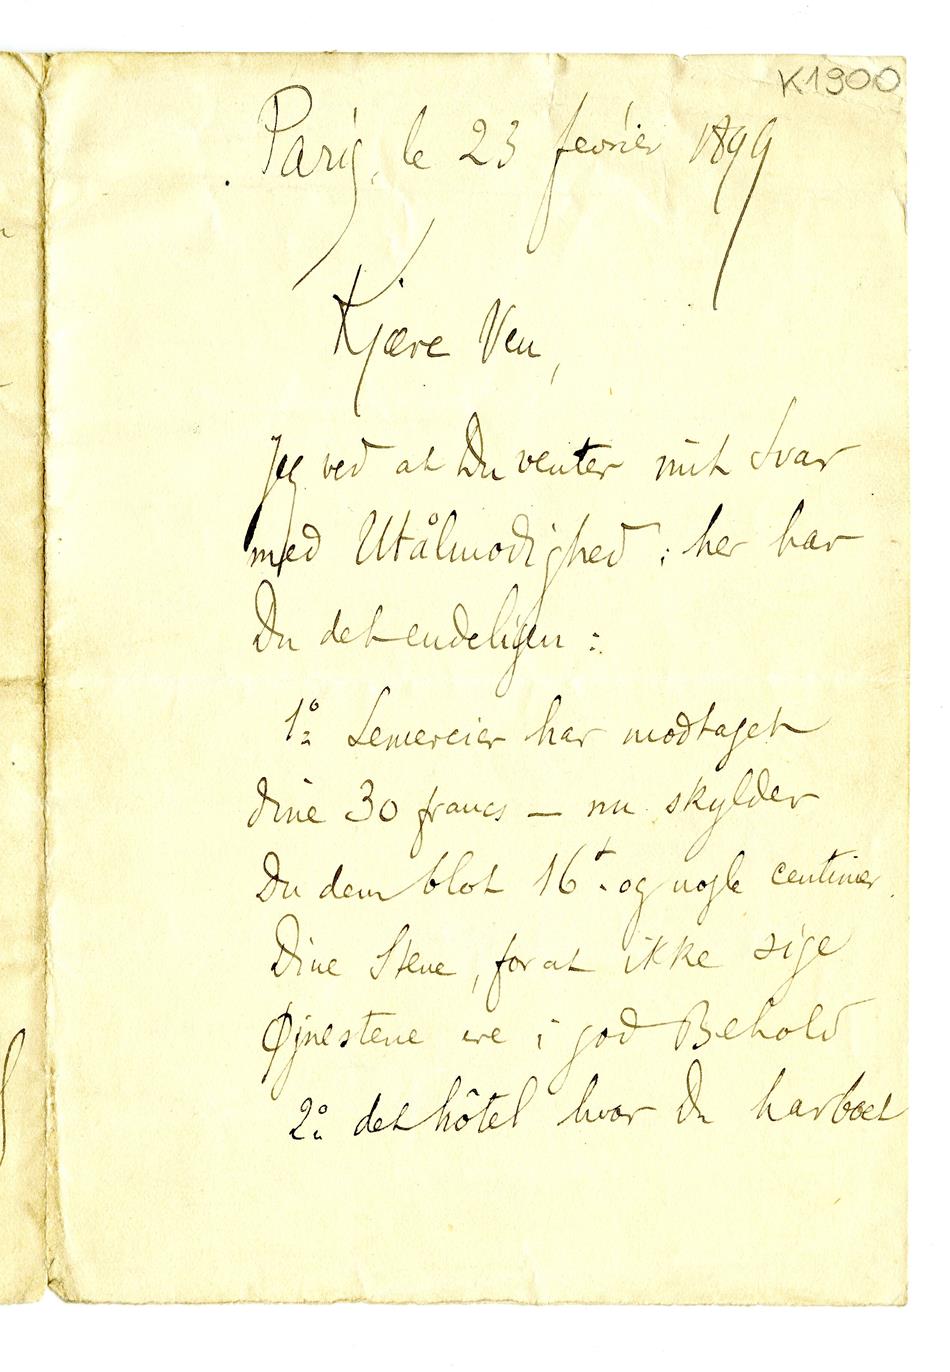 K1900
Paris, le 23 fevrier 1899
Kjære Ven,
Jeg ved at Du venter mit Svar
med Utålmodighed : her har
Du det endeligen :
1º Lemercier har modtaget
dine 30 francs — nu skylder
Du dem blot 16 f. og nogle centimer
Dine Stene, for at ikke sige
Øjnestene ere i god Behold
2º det hôtel hvor Du har boet